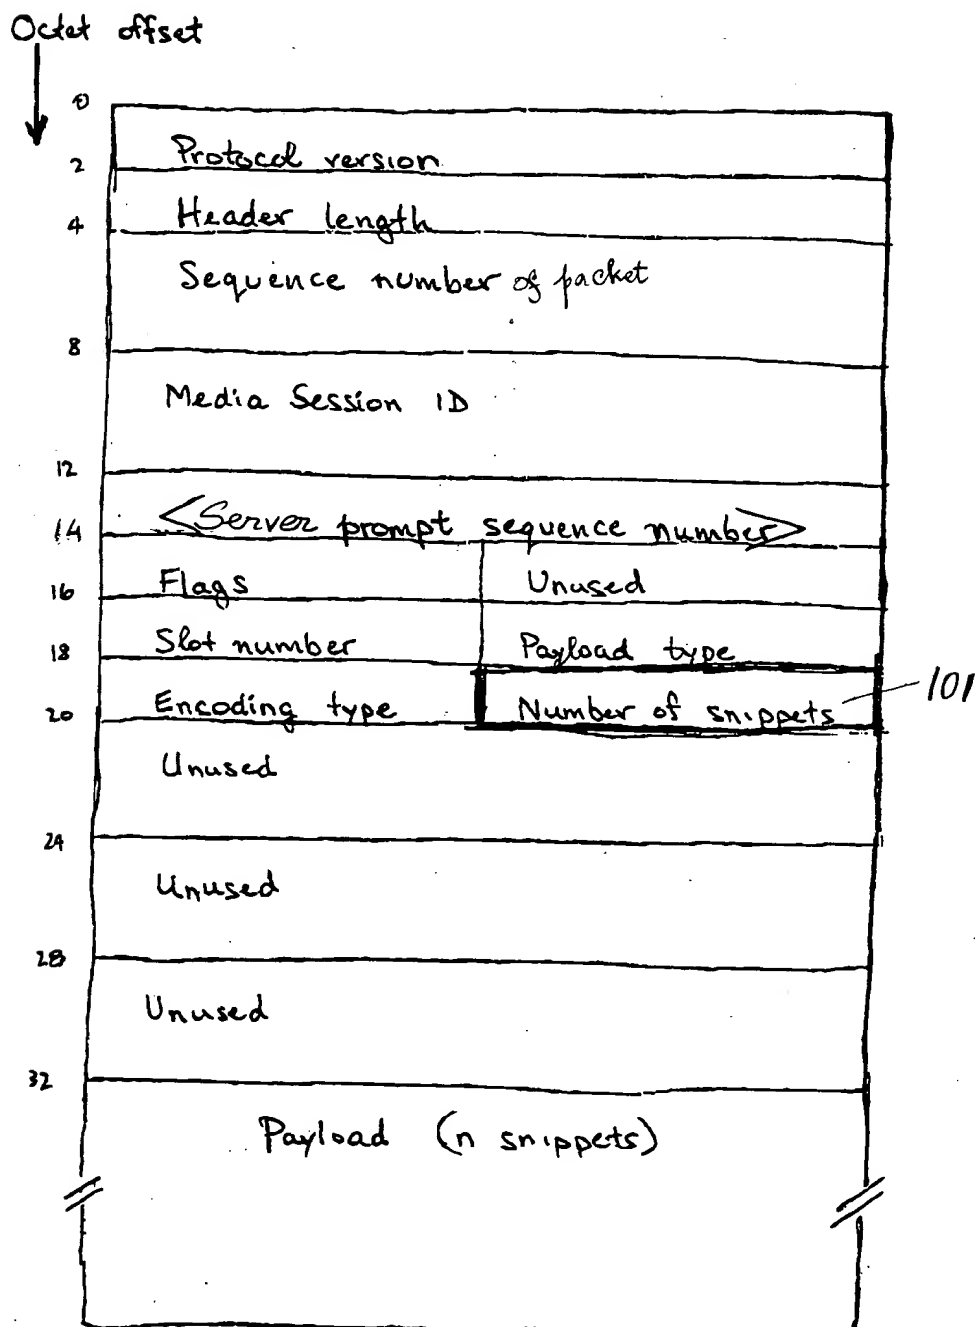 Octet offset
0
Protocol version
2
Header length
4
Sequence number of packet
8
Media Session ID
12
<Server prompt sequence number>
14
Flags Unused
16
Slot number Payload type
18
Encoding type Number of snippets 101
20
Unused
24
Unused
28
Unused
32
Payload (n snippets)